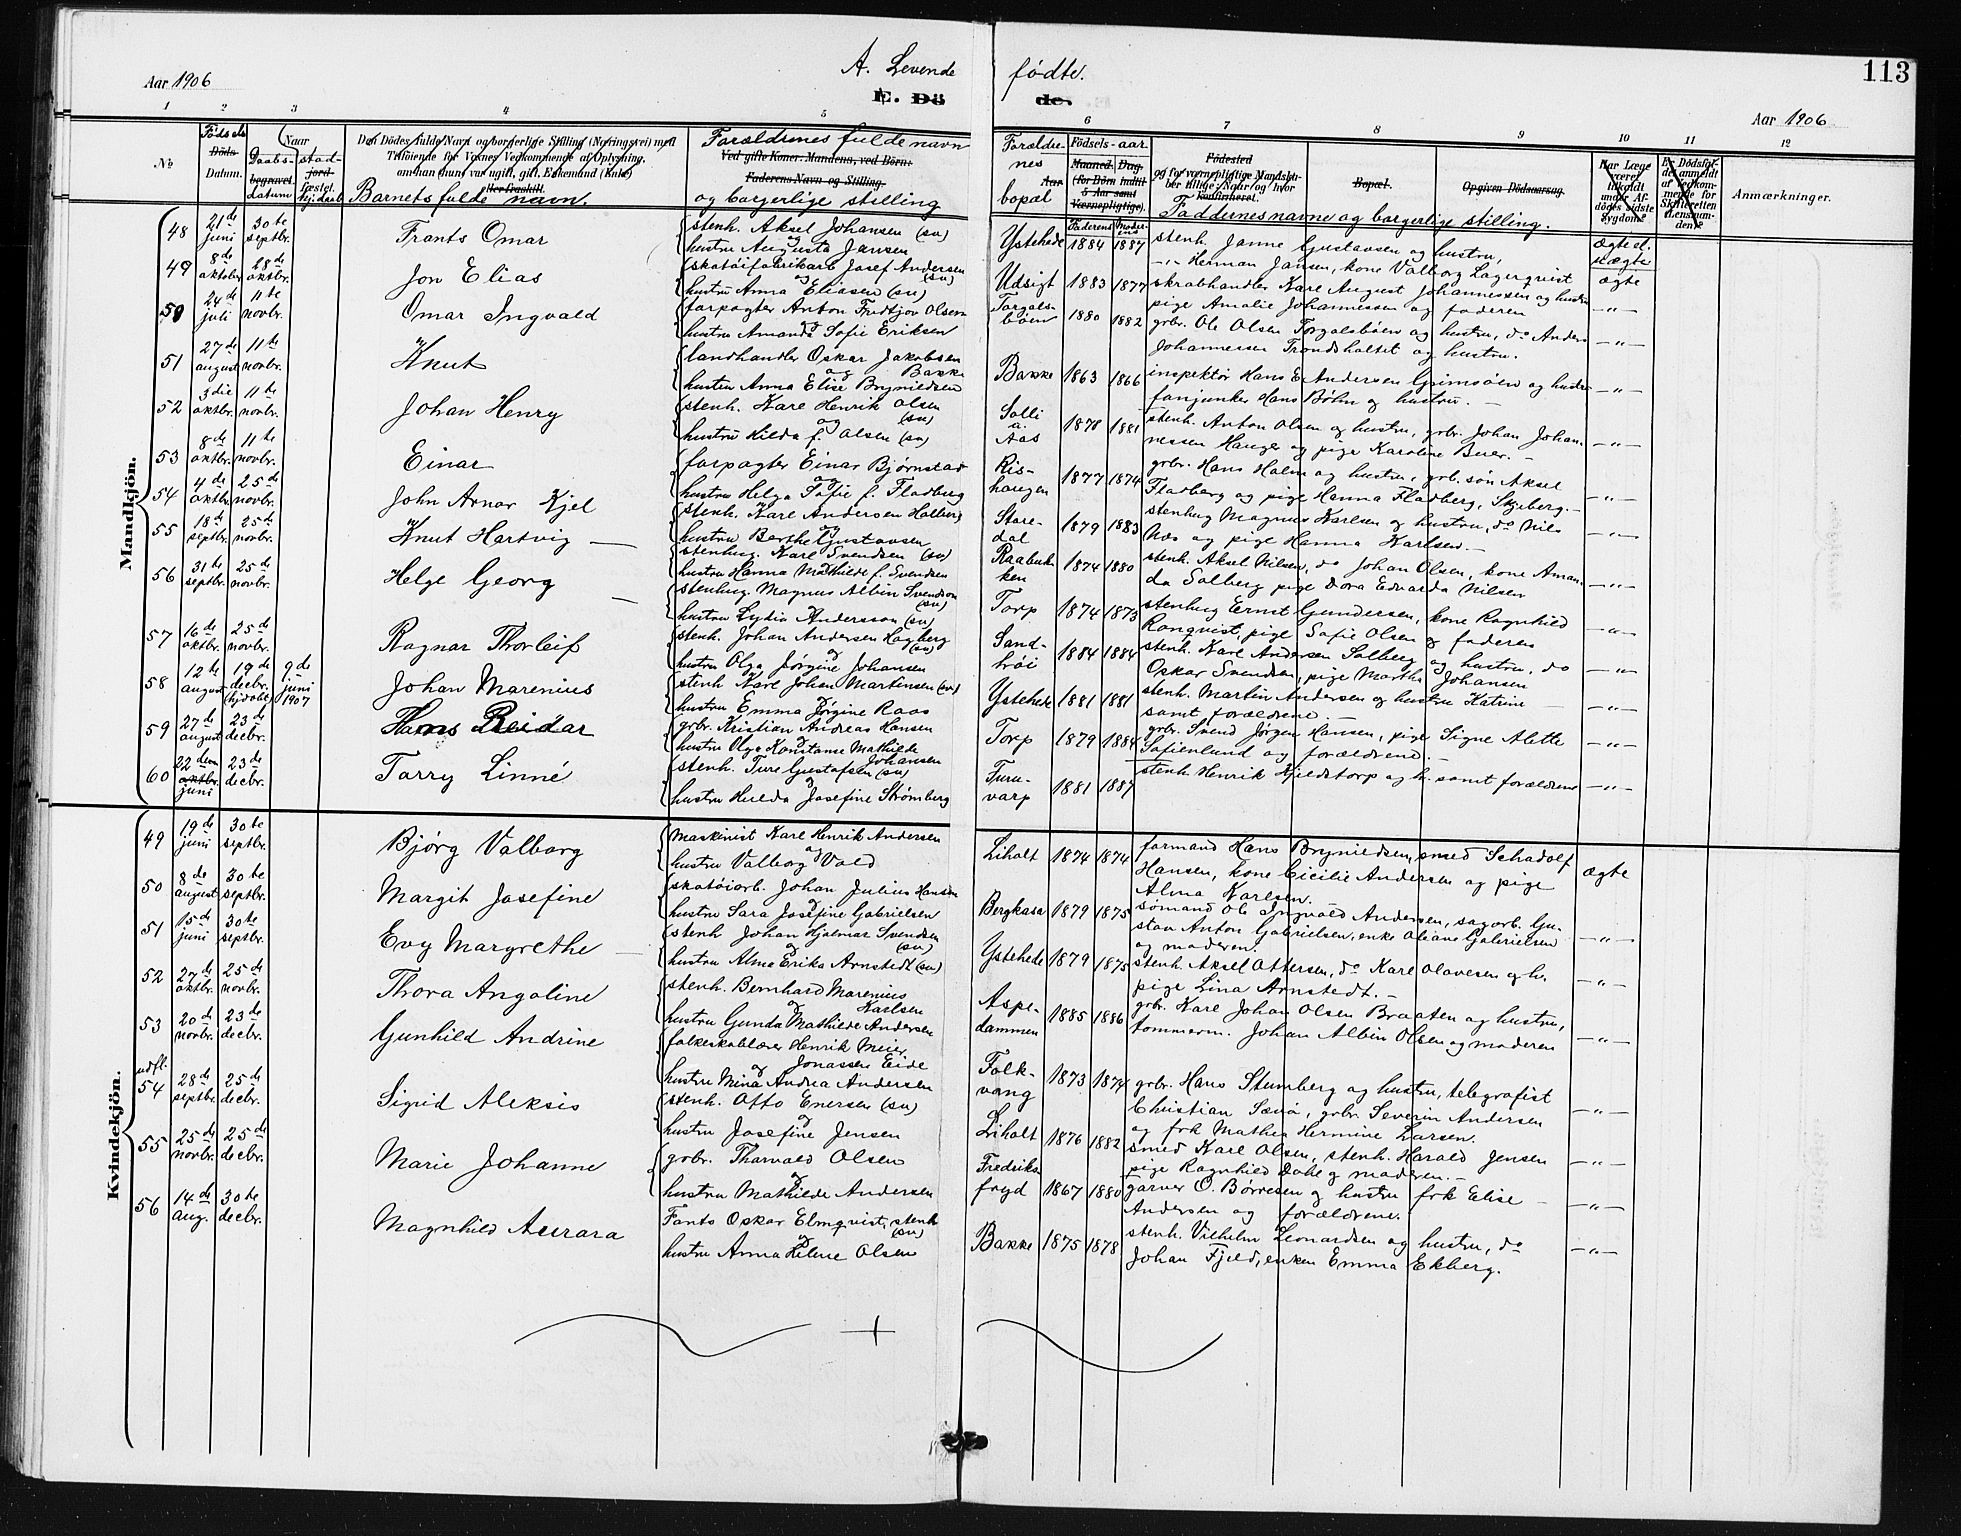 Aar 1906
A. Levende fødte.
E. Dö de.
113
Aar 1906
1 2 3 4 5 6 7 8 9 10 11 12
No
Fødsels Döds Datum.
Naar
Daabs- begravet datum
stad- jord- fæstet. hj. daab
Den Dödes fulde Navn og borgerlige Stilling (Næringsvei) med
Tilföiende for Voxnes Vedkommende af Oplysning,
om han (hun) var ugift, gift, Enkemand (Enke)
eller fraskilt.
Barnets fulde navn.
Forældrenes fulde navn
Ved gifte Koner: Mandens, ved Börn:
Faderens Navn og Stilling.
og borgerlige stilling
Forældre-
nes
Aar
bopæl
Födsels-aar
Maaned. Dag.
(for Börn indtil
5 Aar samt
Værnepligtige).
Faderens Moderens
Födested
og for værnepligtige Mandskaber tillige: Naar og hvor
konfirmeret.
Bopæl.
Opgiven Dödsaarsag.
Faddernes navne og borgerlige stilling.
Har Læge
været
tilkaldt
under Afdödes sidste
Sygdom?
ægte el.
uægte
Er Dödsfaldet anmeldt
af Vedkommende for
Skifteretten
(Lensmanden)?
Anmærkninger.
Mandkjön.
48 21de juni 30te septbr. Frants Omar
stenh. Aksel Johansen (sv)
og
hustru Augusta Jansen
Ystehede 1884 1887 stenh. Janne Gustavsen og hustru,
-"- Herman Jansen, kone Valborg Lagerqvist
49 8de oktober 28de oktbr. Jon Elias
skotøifabrikarb. Josef Andersen
og (sv)
hustru Anna Eliasen (sv)
Udsigt 1883 1877 skrabhandler Karl August Johannessen og hustru
pige Amalie Johannessen og faderen
ægte
50 24de juli 11te novbr. Omar Ingvald
forpagter Anton Fredtjov Olsen
og
hustru Amanda Sofie Eriksen
Torgals-
bøen 1880 1882 grbr. Ole Olsen Torgalsbøen og hustru, do Anders
Johannesen Trondsholtet og hustru.
-"-
51 27de august 11te novbr. Knut
landhandler Oskar Jakobsen
og Bakke
hustru Anna Elise Brynildsen
Bakke 1863 1866 inspektør Hans E Andersen Grimsøen og hustru
fanjunker Hans Bøhn og hustru. -
-"-
52 3die oktbr. 11te novbr. Johan Henry
stenh. Karl Henrik Olsen
og (sv)
hustru Hilda f. Olsen (sv)
Solli
a.
Aas 1878 1881 stenh. Anton Olsen og hustru, grbr. Johan Johan-
nessen Hauge og pige Karoline Buer. -
-"-
53 8de oktbr. 11te novbr. Einar
forpagter Einar Bjørnstad
og
hustru Helga Sofie f. Fladberg
Ris-
haugen 1877 1874 grbr. Hans Holm og hustru, grb. søn Aksel
Fladberg og pige Hanna Fladberg, Skjeberg. -
-"-
54 4de oktbr. 25de novbr. John Arnar Kjel
stenh. Karl Andersen Holberg
og
hustru Berthe Gustavsen
Store-
dal 1879 1883 stenhug Magnus Karlsen og hustru, do Nils
Næs og pige Hanna Karlsen. -
-"-
55 18de septbr. 25de novbr. Knut Hartvig -
stenhug. Karl Svendsen (sv)
hustru Hanna Mathilde f. Svendsen
Raabuk-
ken 1874 1880 stenh. Aksel Nilsen, do Johan Olsen, kone Aman-
da Solberg pige Dora Edvarda Nilsen
-"-
56 31te septbr. 25de novbr. Helge Georg -
stenhug. Magnus Albin Svendson
(sv)
hustru Lydia Andersson (sv)
Torp 1874 1873 stenhug Ernst Gundersen, kone Ragnhild
Ronqvist, pige Sofie Olsen og faderen
-"-
57 16de oktbr. 25de novbr. Ragnar Thorleif
stenh. Johan Andersen Hogberg
og (sv)
hustru Olga Jørgine Johansen
Sand-
høi 1884 1884 stenh. Karl Andersen Solberg og hustru, do
Oskar Svendsen, pige Martha Johansen
-"-
58 12te august 19de decbr. (hjdøbt) 9de juni 1907 Johan Marenius
stenh Karl Johan Martinsen (sv)
og
hustru Emma Jørgine Raas
Ystehede 1881 1881 stenh. Martin Andersen og hustru Katrine -
samt forældrene. -
-"-
59 27de august 23de decbr. Hans Reidar
grbr. Kristian Andreas Hansen
og
hustru Olga Konstanse Mathilde
Johansen
Torp 1879 1884 grbr. Svend Jørgen Hansen, pige Signe Alette
Sofienlund og forældrene. -
-"-
60 22den oktbr. juni 23de decbr. Torry Linné
stenh. Ture Gustafsen (sv)
og
hustru Hulda Josefine Strömberg
Furu-
varp 1881 1887 stenh. Henrik Kjeldstorp og h. samt forældrene -"-
Kvindekjön.
49 19de juni 30te septbr. Bjørg Valborg
Maskinist Karl Henrik Andersen
og
hustru Valborg Vold
Liholt 1874 1874 formand Hans Brynildsen, smed Schadolf
Hansen, kone Cicilie Andersen og pige
Alma Karlsen.
ægte
50 8de august 30te septbr. Margit Josefine
skotøiarb. Johan Julius Hansen
og
hustru Sara Josefine Gabrielsen
Bergkasa 1879 1875 sømand Ole Ingvald Andersen, sagarb. Gu-
stav Anton Gabrielsen, enke Oliane Gabrielsen
og moderen.
-"-
51 15de juni 30te septbr. Evy Margrethe -
stenh Johan Hjalmar Svendsen
og (sv)
hustru Alma Erika Arnstedt (sv)
Ystehede 1879 1875 stenh. Aksel Ottersen, do Karl Olavesen og h.
pige Lina Arnstedt. -
-"-
52 27de oktbr. 25de novbr. Thora Angoline
stenh. Bernhard Marenius
og Karlsen
hustru Gunda Mathilde Andersen
Aspe-
dammen 1885 1886 grbr. Karl Johan Olsen Braaten og hustru,
tømmerm. Johan Albin Olsen og moderen
-"-
53 20de novbr. 23de decbr. Gunhild Andrine
folkeskolelærer Henrik Meier
og Jonassen Eide
hustru Mina Andrea Andersen
Folk-
vang 1873 1874 grbr. Hans Stumberg og hustru, telegrafist
Christian Sævø, grbr. Severin Andersen
og frk Mathea Hermine Larsen.
-"-
udfl.
54 28de septbr. 25de decbr. Sigrid Aleksis
stenh. Otto Enersen (sv)
og
hustru Josefine Jensen
Liholt 1876 1882 smed Karl Olsen, stenh. Harald Jensen
pige Ragnhild Dahl og moderen. -
-"-
55 25de novbr. 25de decbr. Marie Johanne
grbr. Thorvald Olsen
og
hustru Mathilde Andersen
Fredriks
fryd 1867 1880 garver O. Børresen og hustru frk Elise -
Andersen og forældrene.
-"-
56 14de aug. 30te decbr. Magnhild Aurara
Fants Oskar Elmqvist, stenh
og (sv)
hustru Anna Helene Olsen
Bakke 1875 1878 stenh. Vilhelm Leonardsen og hustru, do
Johan Fjeld, enken Emma Ekberg.
-"-